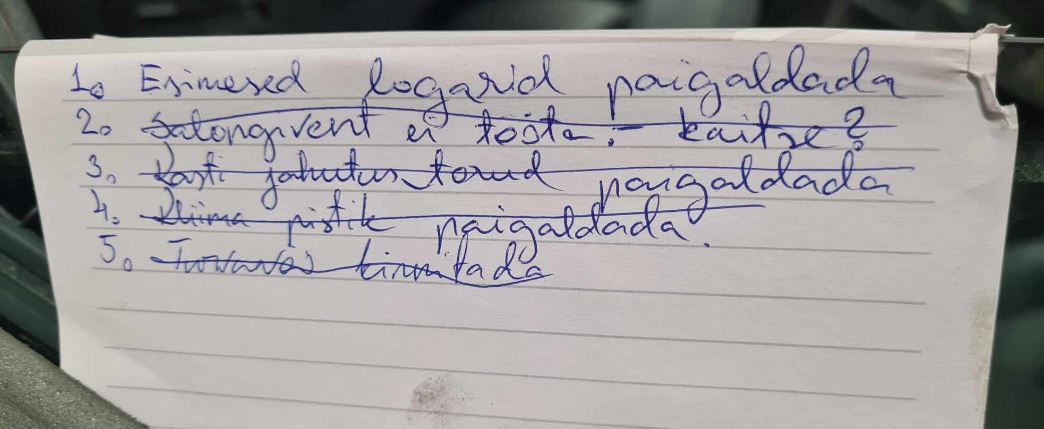 1. Esimesed logarid paigaldada
2. Salongivent ei tööta. - kaitse?
3. Kasti jahutus torud paigaldada
4. Kliima pistik paigaldada.
5. kinnitada